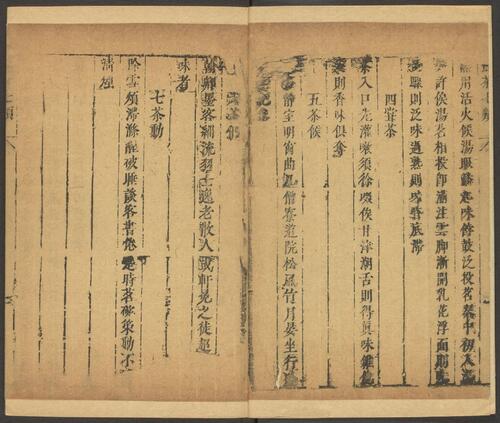 用活火候湯眼鱗鱗起沫餑鼓泛投茗器中初入湯
少許候湯茗相投即滿注雲腳漸開乳花浮面則味
驟則乏味過熟則味昏底滯
四嘗茶
茶入口先灌漱須徐啜俟甘津潮舌則得真味雜他
果則香味俱奪
五茶候
靜室明窗曲几僧寮道院松風竹月晏坐行
翰卿墨客緇流羽士逸老散人或軒冕之徒超
味者
七茶勳
除雪煩滯滌醒破睡談客書倦是時茗碗策勳不
凌煙